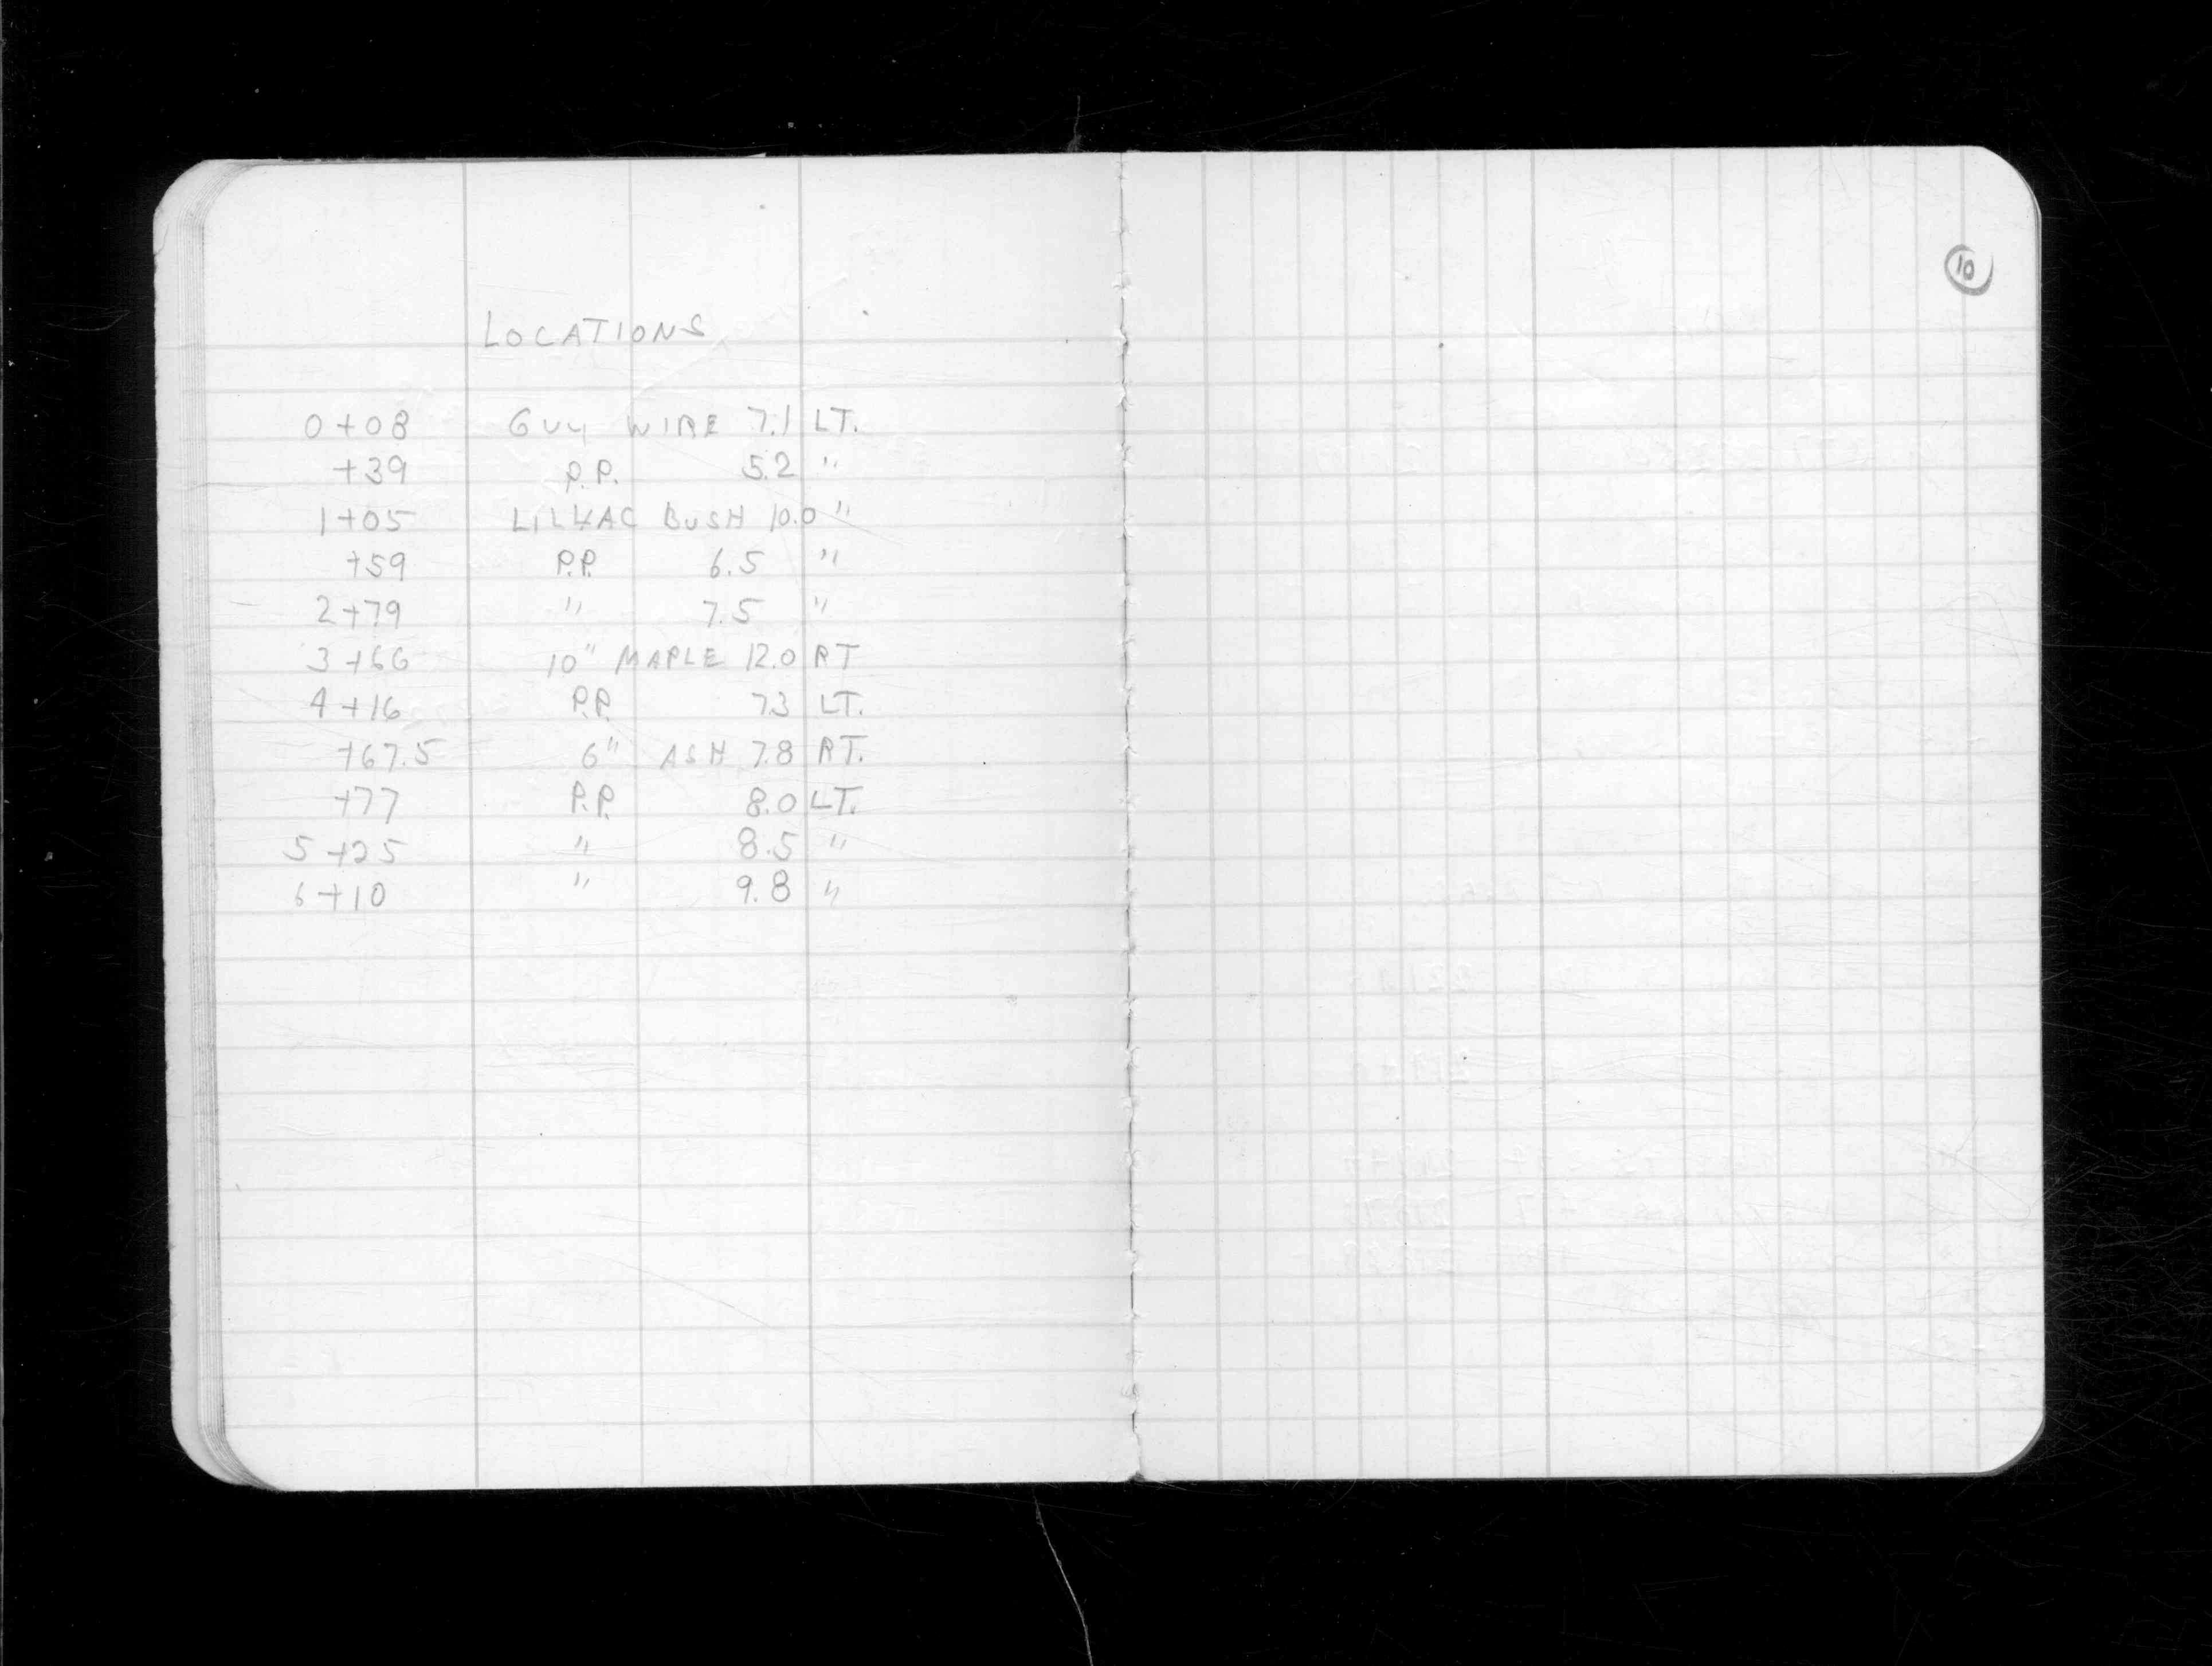 10
LOCATIONS
0+08 GUY WIRE 7.1 LT.
+39 P.P. 5.2 "
1+05 LILYAC BUSH 10.0 "
+59 P.P. 6.5 "
2+79 " 7.5 "
3+66 10" MAPLE 12.0 RT
4+16 P.P. 7.3 LT.
+67.5 6" ASH 7.8 RT.
+77 P.P. 8.0 LT.
5+25 " 8.5 "
6+10 " 9.8 "